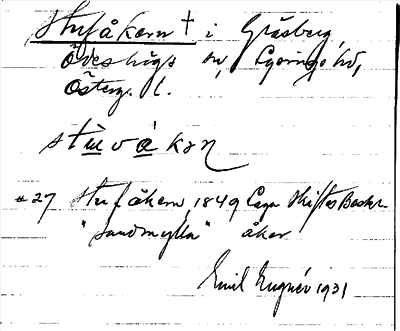 Stufåkern † i Gråsberg,
Ödeshögs sn, Lysings hd,
Österg. l.
stuvåkən
#27 Stufåkern, 1849 Laga Skiftes Beskr.
"sandmylla" åker
Emil Eugnér 1931